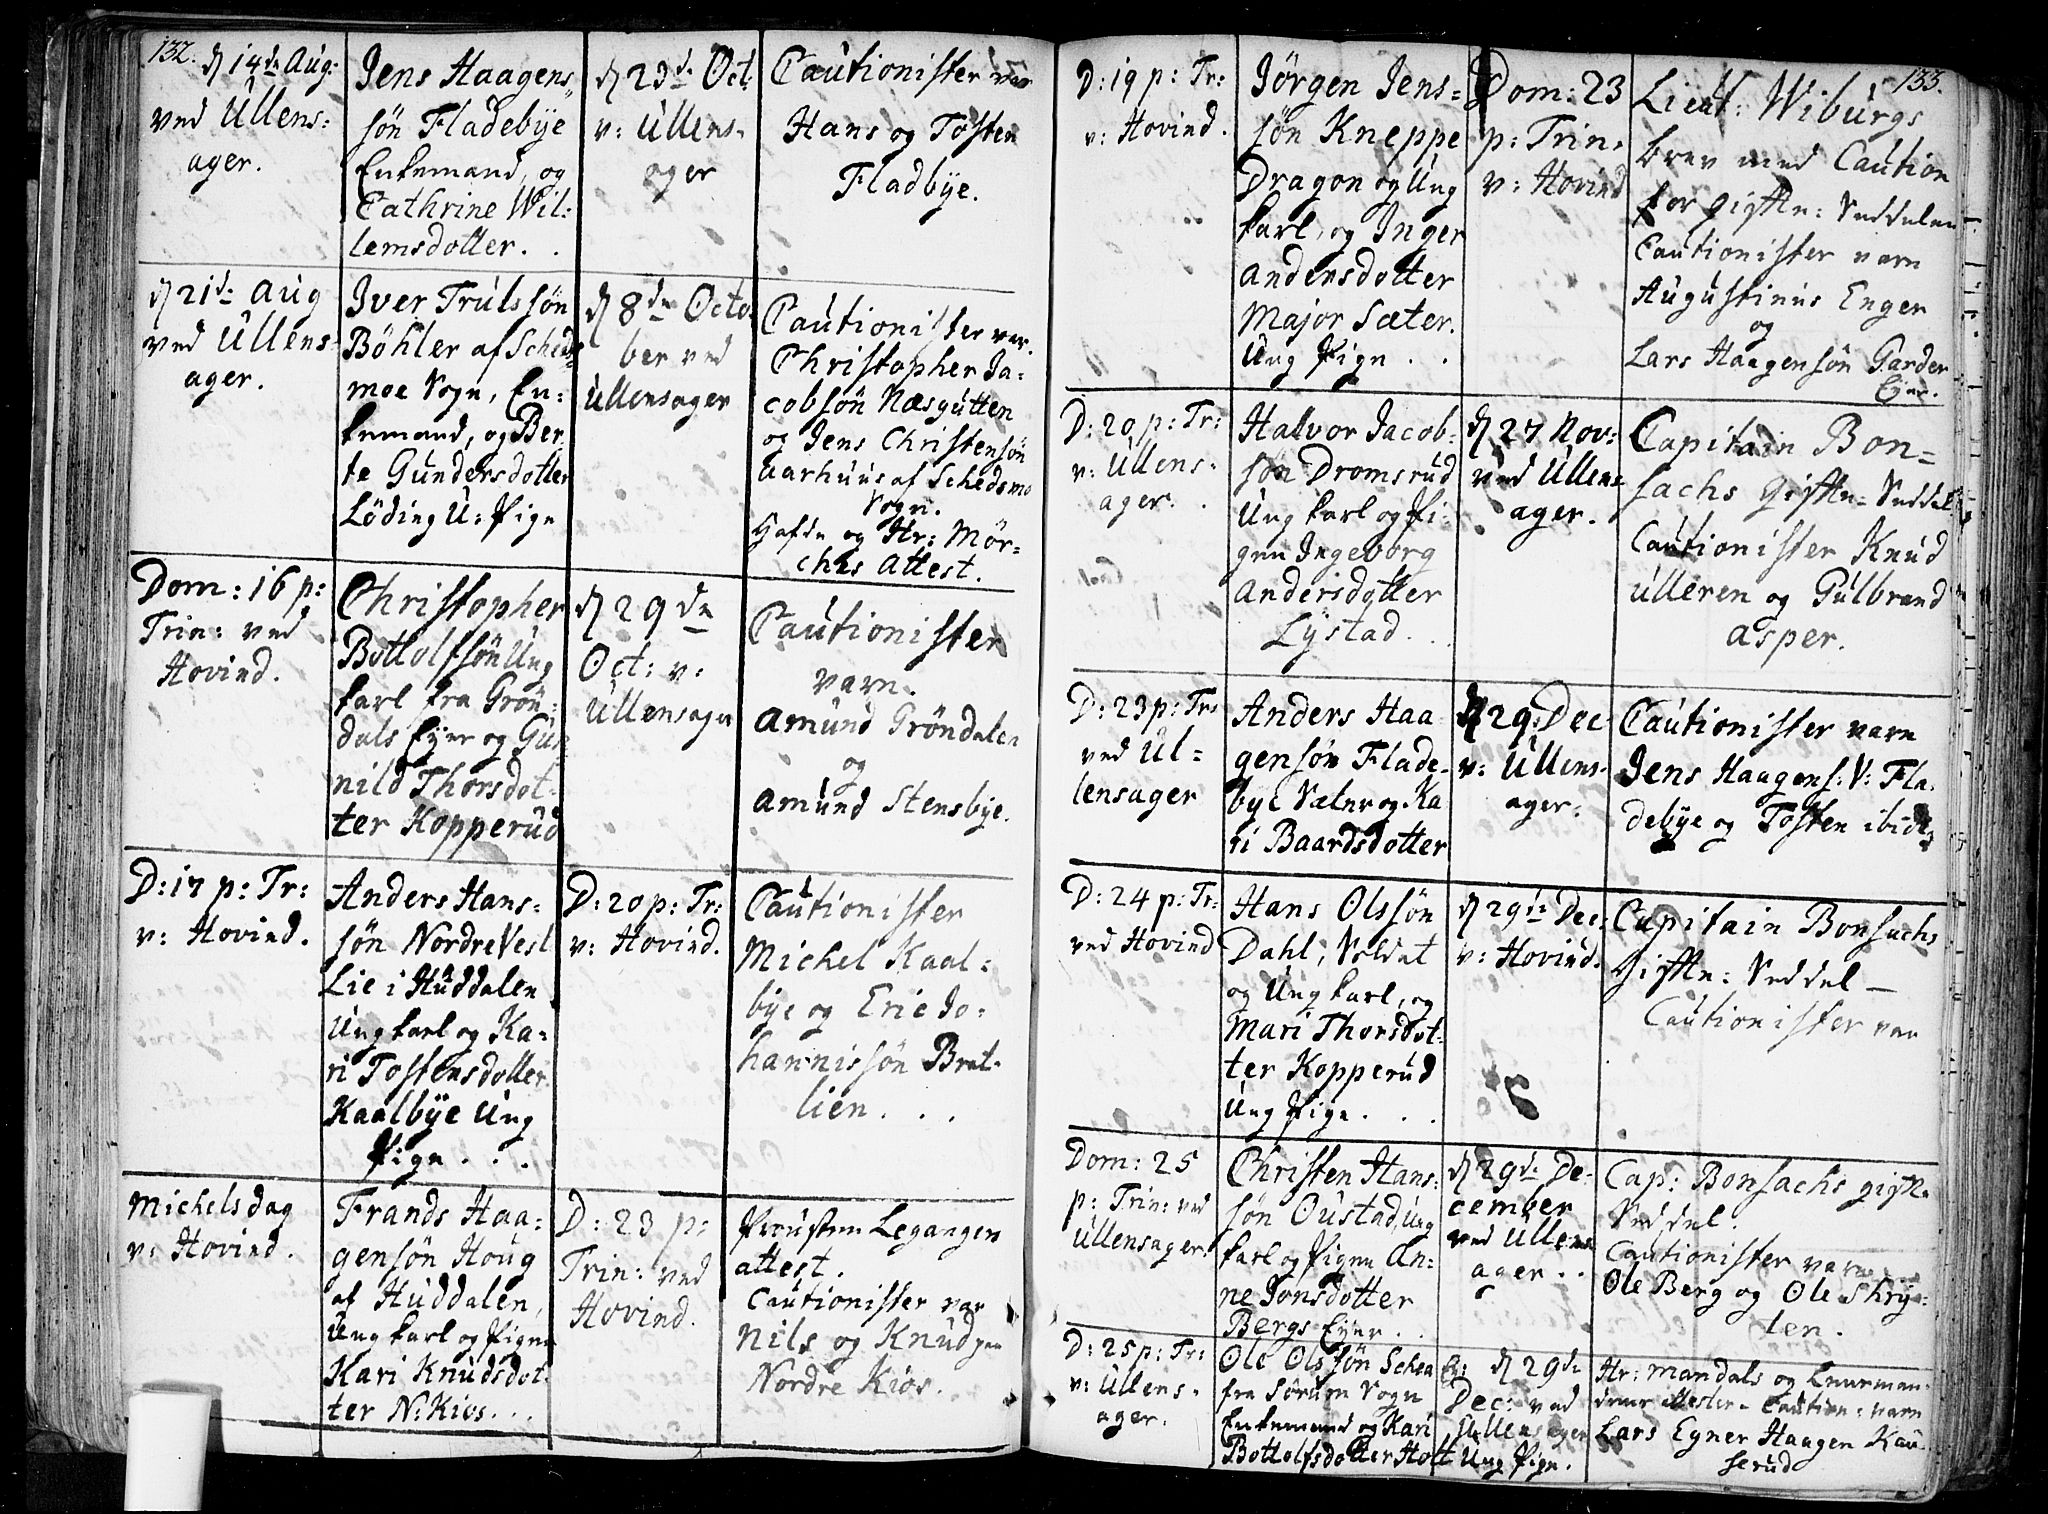 132.
d 14de Aug:
ved Ullens:
ager.
Jens Haagens
søn Fladebÿe
Enkemand, og
Cathrine Wil:
lemsdotter.
d 23de Oct:
v: Ullens-
ager
Cautionister var
Hans og Tosten
Fladbÿe.
d 21de Aug
ved Ullens-
ager.
Iver Trulssøn
Bøhler af Scheds
moe Sogn, En:
kemand, og Ber
te Gundersdotter
Løding U: Pige
d 8de Octo
ber ved
Ullensager
Cautionister var.
Christopher Ja:
cobsøn Næsgutten
og Jens Christensøn
Aarhuus af Schedsmo
Sogn.
Hafde og Hr: Mør-
chs Attest.
Dom: 16 p:
Trin: ved
Hovind.
Christopher
Bottolfsøn Ung
karl fra Grøn:
dals Eyer og Gu
nild Thorsdot-
ter Kopperud
d 29de
Oct: v:
Ullensager
Cautionister
vare.
Amund Grøndalen
og
Amund Stensbye.
D: 17 p: Tr:
v: Hovind.
Anders Hans-
søn Nordre Vesl
Lie i Huddalen
Ung karl og Ka-
ri Tostensdotter
Kaalbÿe Ung
Pige . . .
D: 20 p: Tr:
v: Hovind.
Cautionister
Michel Kaal-
bÿe og Eric Jo-
hannissøn Brat-
lien . . .
Michelsdag
v: Hovind.
Frands Haa-
gensøn Houg
af Huddalen,
Ung karl og Pigen
Kari Knudsdot-
ter N: Kios . . .
D: 23 p:
Trin: ved
Hovind.
Prousten Legangen
attest.
Cautionister var
Nils og Knud paa
Nordre Kios.
133.
D: 19 p: Tr:
v: Hovind.
Jørgen Jens-
søn Kneppe
Dragon og Ung
karl, og Inger
Andersdotter
Major Sæter.
Ung Pige . .
Dom: 23
p: Trin.
v: Hovind
Lieut: Wiburgs
brev med Caution
for gifte: Seddelen
Cautionister vare
Augustinus Enger
og
Lars Haagensøn Garder
Eyer.
D: 20 p: Tr:
v: Ullens-
ager.
Halvor Jacob-
søn Dromsrud
Ung karl og Pi-
gen Ingeborg
Andersdotter
Lÿstad . .
d 27 Nov:
ved Ullens
ager.
Capitain Bon=
sachs Gifte= Seddel
Cautionister Knud
Ulleren og Gulbrand
Asper.
D: 23 p: Tr:
ved Ul=
lensager
Anders Haa
gensøn Flade-
bye Sætner og Ka
ri Baardsdotter
d 29: Dec
v: Ullens-
ager:
Cautionister vare
Jens Haagens: V: Fla-
debÿe og Tosten ibid:
D: 24 p: Tr:
ved Hovind
Hans Olssøn
Dahl, Soldat
og Ung karl, og
Mari Thorsdot-
ter Kopperud
Ung Pige . . .
d 29de Dec:
v: Hovind.
Capitain Bonsachs
Gifte: Seddel —
Cautionister var
Dom: 25
p: Trin: ved
Ullensager.
Christen Hans-
søn Oustad, Ung
karl og Pigen An-
ne Jonsdotter
Bergs Eyer . .
d 29de De-
cember
ved Ullens
ager . .
Cap: Bonsachs gifte-
Seddel.
Cautionister vare
Ole Berg og Ole Skrÿ-
ten.
D: 25 p: Tr:
v: Ullens-
ager.
Ole Olssøn
fra Sørum Sogn
Enkemand og Kari
Bottolfsdotter Holt Ung Pige.
d 29de
Dec: ved
Ullensager
Hr: Mandals og
Caution: vare
Lars Egner Haagen Kau-
serud